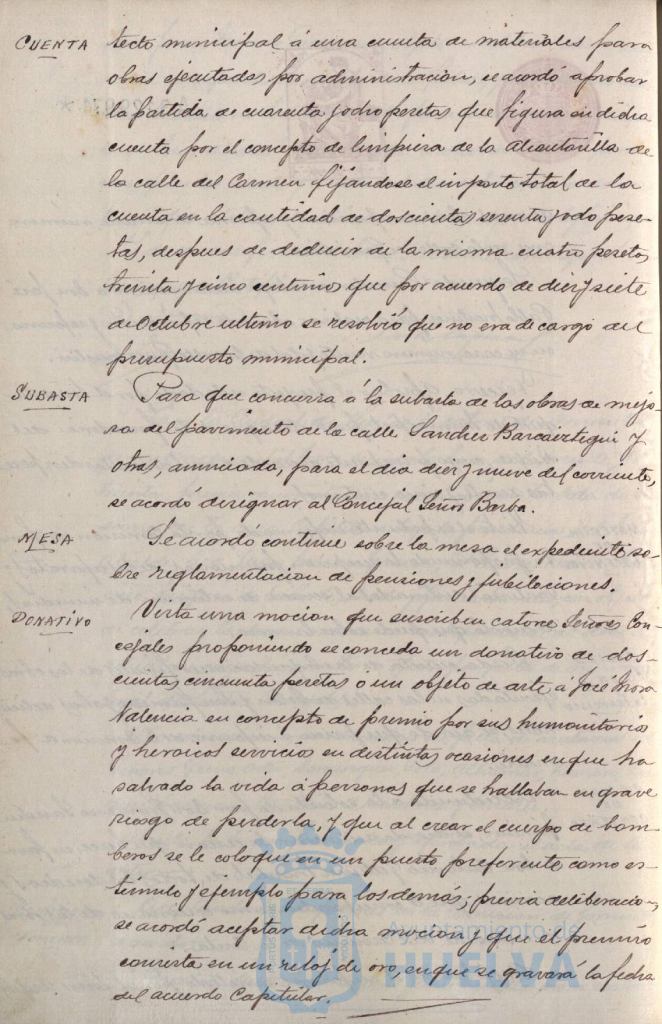 CUENTA
tecto municipal á una cuenta de materiales para
obras ejecutadas por administracion, se acordó aprobar
la partida de cuarenta y ocho pesetas que figura en dicha
cuenta por el concepto de limpieza de la Alcantarilla de
la calle del Carmen fijándose el importe total de la
cuenta en la cantidad de doscientas sesenta y ocho pese-
tas, despues de deducir de la misma cuatro pesetas
treinta y cinco centimos que por acuerdo de diez y siete
de Octubre ultimo se resolvió que no era de cargo del
presupuesto municipal.
SUBASTA
Para que concurra á la subasta de las obras de mejo-
ra del pavimento de la calle Sanchez Barcaiztegui y
otras, anunciada, para el dia diez y nueve del corriente,
se acordó designar al Concejal Señor Barba.
MESA
Se acordó continue sobre la mesa el expediente so-
bre reglamentacion de pensiones y jubilaciones.
DONATIVO
Vista una mocion que suscriben catorce Señores Con-
cejales proponiendo se conceda un donativo de dos-
cientas cincuenta pesetas ó un objeto de arte á José Mora
Valencia en concepto de premio por sus humanitarios
y heroicos servicios en distintas ocasiones en que ha
salvado la vida á personas que se hallaban en grave
riesgo de perderla, y que al crear el cuerpo de bom-
beros se le coloque en un puesto preferente como es-
tímulo y ejemplo para los demás; previa deliberacion,
se acordó aceptar dicha mocion y que el premio
consista en un reloj de oro, en que se gravará la fecha
del acuerdo Capitular.
Ayuntamiento de
HUELVA